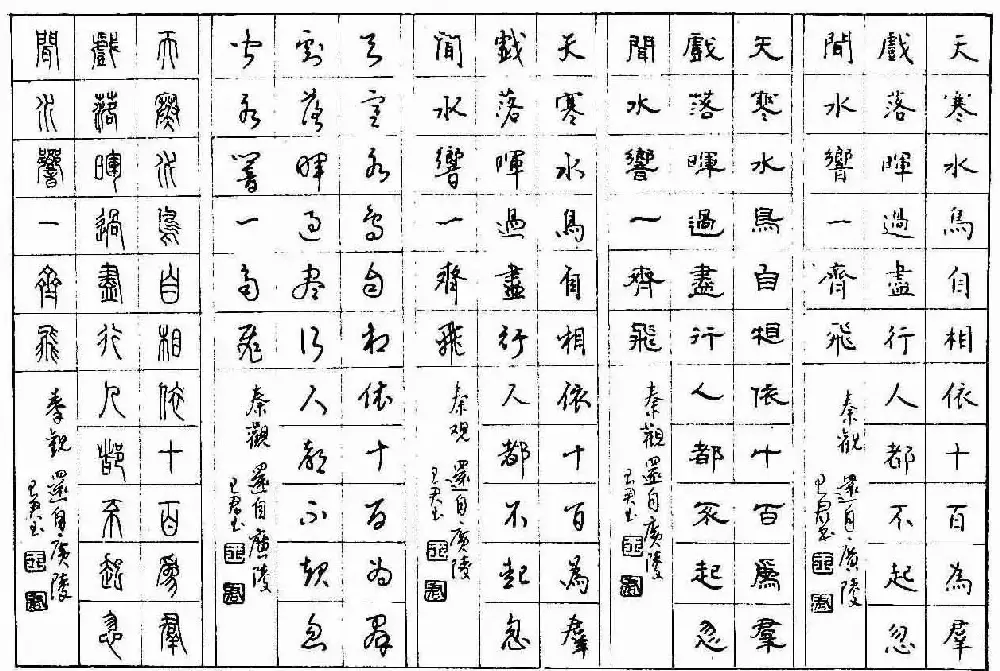 天寒水鳥自相依十百為羣
戲落暉過盡行人都不起忽
聞水響一齊飛
秦觀 還自廣陵
天寒水鳥自相依十百為羣
戲落暉過盡行人都不起忽
聞水響一齊飛
秦觀 還自廣陵
天寒水鳥自相依十百為羣
戲落暉過盡行人都不起忽
聞水響一齊飛
秦观 還自廣陵
天寒水鳥自相依十百為羣
戲落暉過盡行人都不起忽
聞水響一齊飛
秦觀 還自廣陵
天寒水鳥自相依十百為羣
戲落暉過盡行人都不起忽
聞水響一齊飛
秦觀 還自廣陵